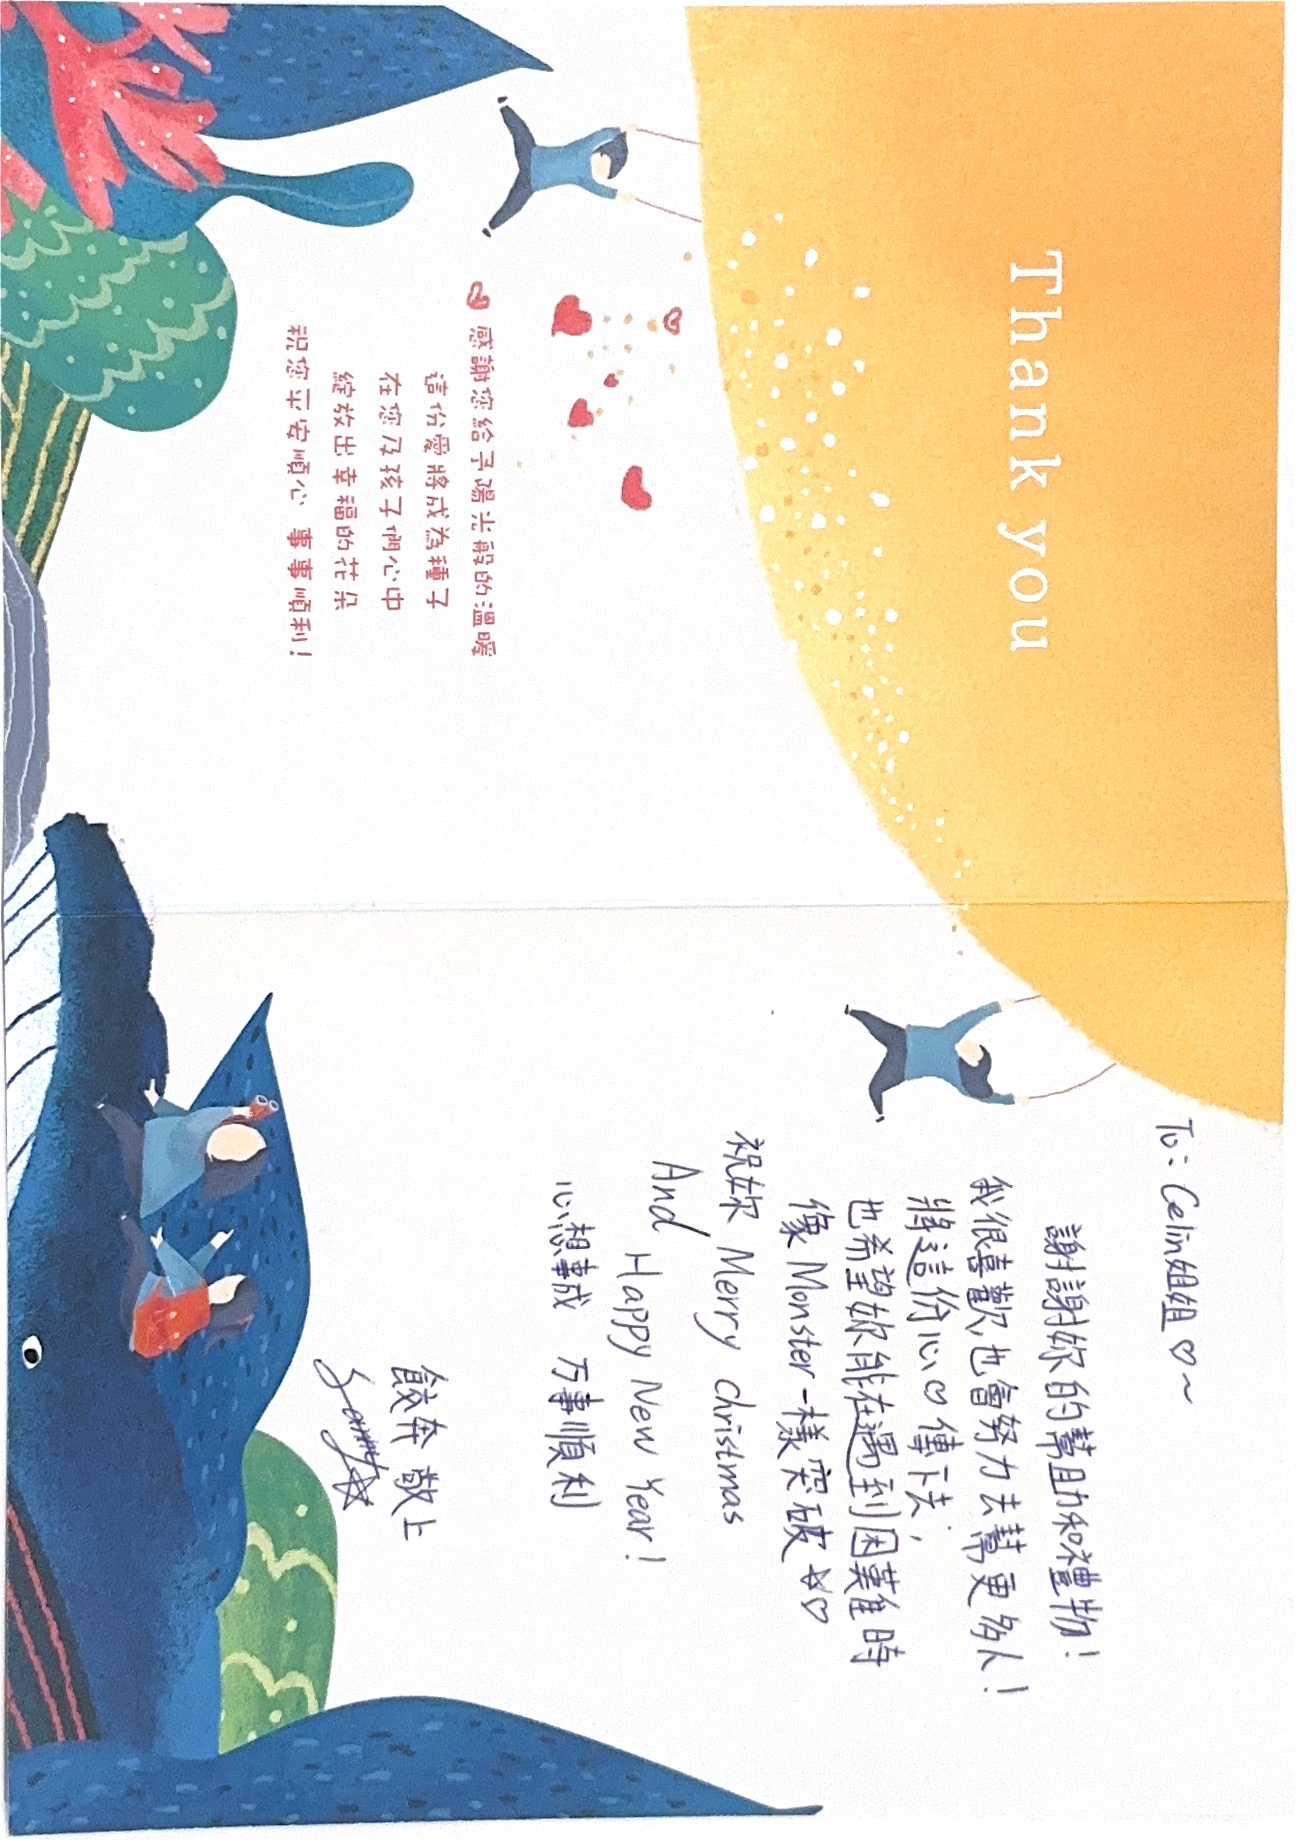 Thank you
感謝您給予陽光般的溫暖
這份愛將成為種子
在您及孩子們心中
綻放出幸福的花朵
祝您平安順心 事事順利!
To: Celin姐姐♡~
謝謝妳的幫助和禮物!
我很喜歡,也會努力去幫更多人!
將這份心♡傳下去,
也希望妳能在遇到困難時
像Monster一樣突破☆♡
祝妳 Merry christmas
And Happy New Year!
心想事成 万事順利
餃奔 敬上